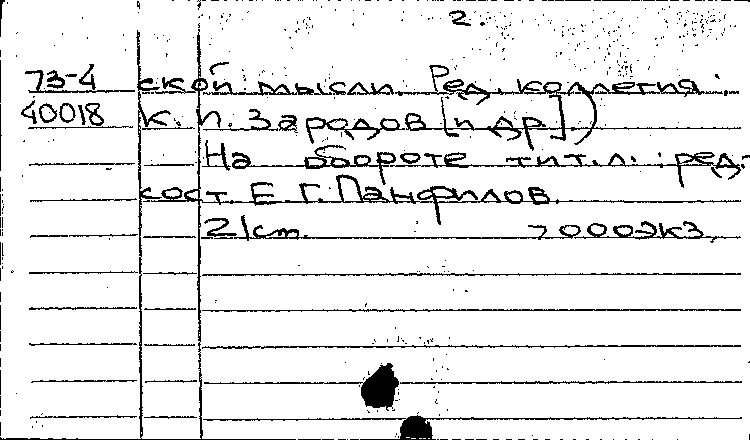 2.
73-4 ской мысли. Ред. коллегия:
40018 К. П. Зародов [и др].)
На обороте тит. л.: ред.-
сост. Е. Г. Панфилов.
21 cm. 7000 экз.